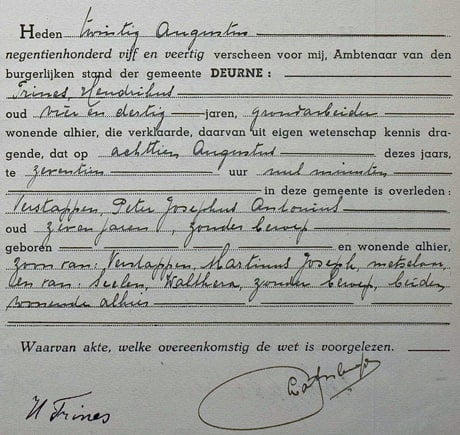 Heden twintig Augustus
negentienhonderd vijf en veertig verscheen voor mij, Ambtenaar van den
burgerlijken stand der gemeente DEURNE :
Trines, Hendrikus
oud vier en dertig jaren, grondarbeider
wonende alhier, die verklaarde, daarvan uit eigen wetenschap kennis dra-
gende, dat op achttien Augustus dezes jaars,
te zeventien uur nul minuten
in deze gemeente is overleden :
Verstappen, Peter Josephus Antonius
oud zeven jaren, zonder beroep
geboren en wonende alhier,
zoon van: Verstappen, Martinus Joseph, metselaar,
en van: Seelen, Walthera, zonder beroep, beiden
wonende alhier
Waarvan akte, welke overeenkomstig de wet is voorgelezen.
H Trines